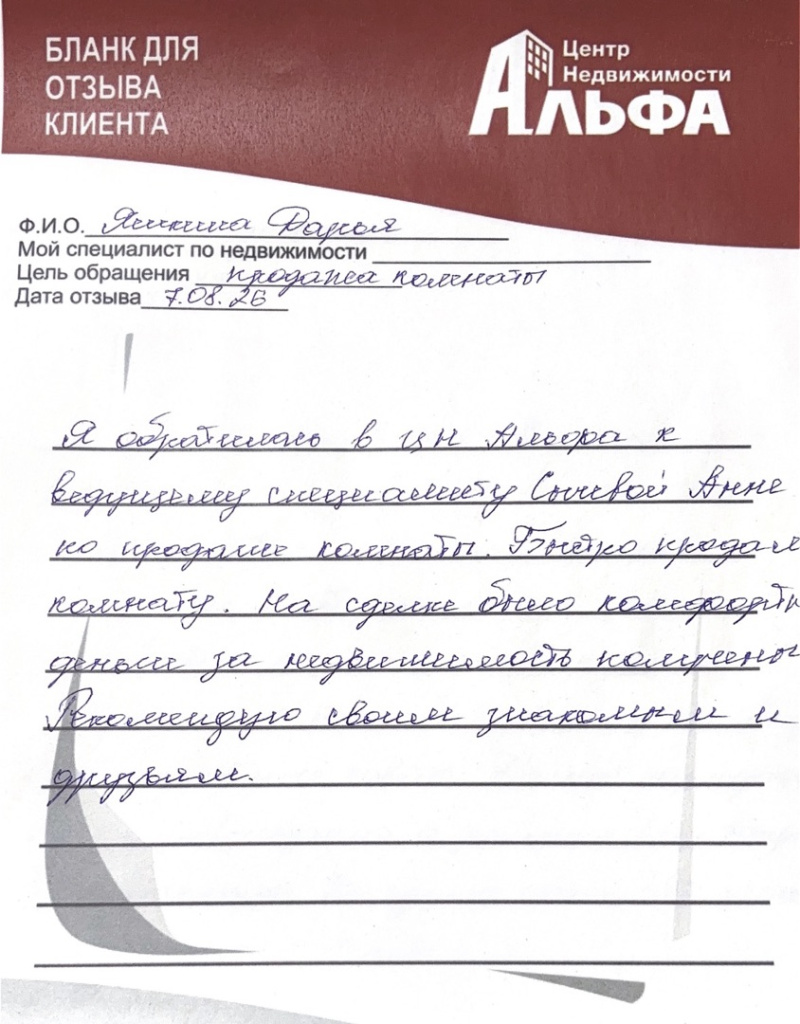 БЛАНК ДЛЯ
ОТЗЫВА
КЛИЕНТА
Центр
Недвижимости
АЛЬФА
Ф.И.О. Яшкина Дарья
Мой специалист по недвижимости
Цель обращения продажа комнаты
Дата отзыва 7.08.26
Я обратилась в ЦН Альфа к
ведущему специалисту Сычевой Анне
по продаже комнаты. Быстро продали
комнату. На сделке было комфортн
деньги за недвижимость получены
Рекомендую своим знакомым и
друзьям.